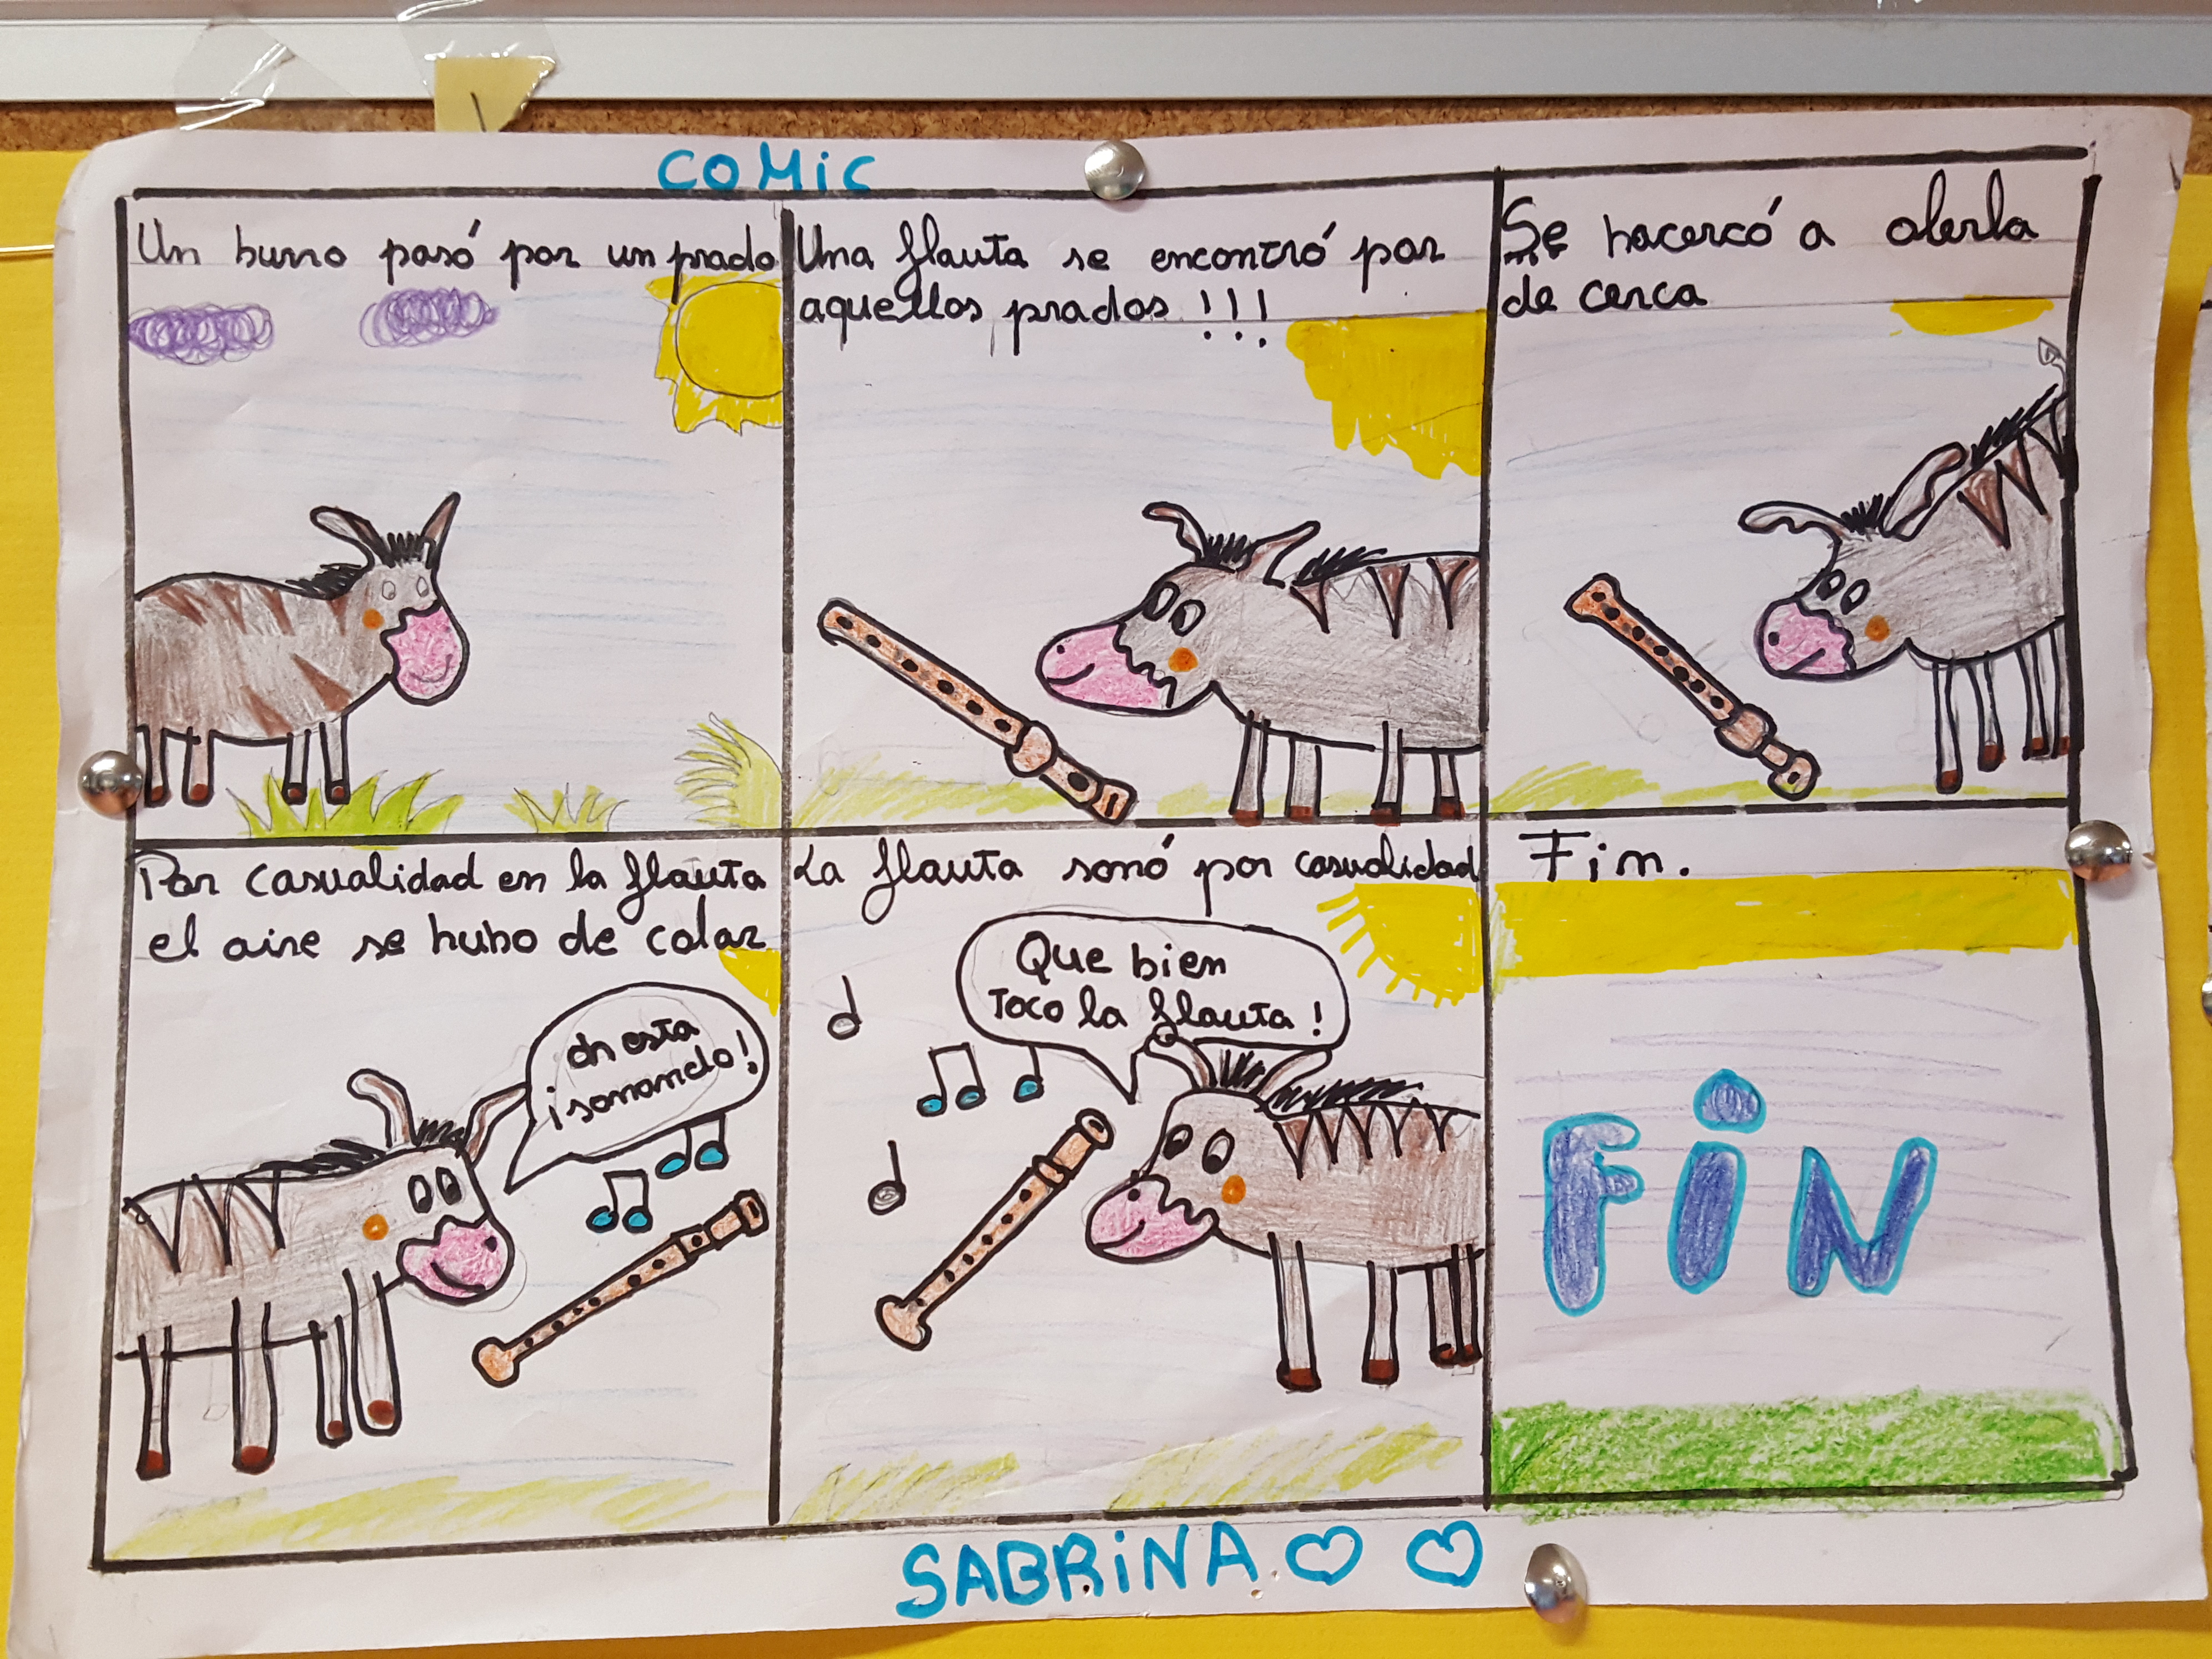 COMiC
Un burro pasó por un prado
Una flauta se encontró por
aquellos prados !!!
Se hacercó a olerla
de cerca
Por casualidad en la flauta
el aire se hubo de colar
oh esta
¡sonando!
La flauta sonó por casualidad
Que bien
Toco la flauta!
Fin.
FiN
SABRiNA